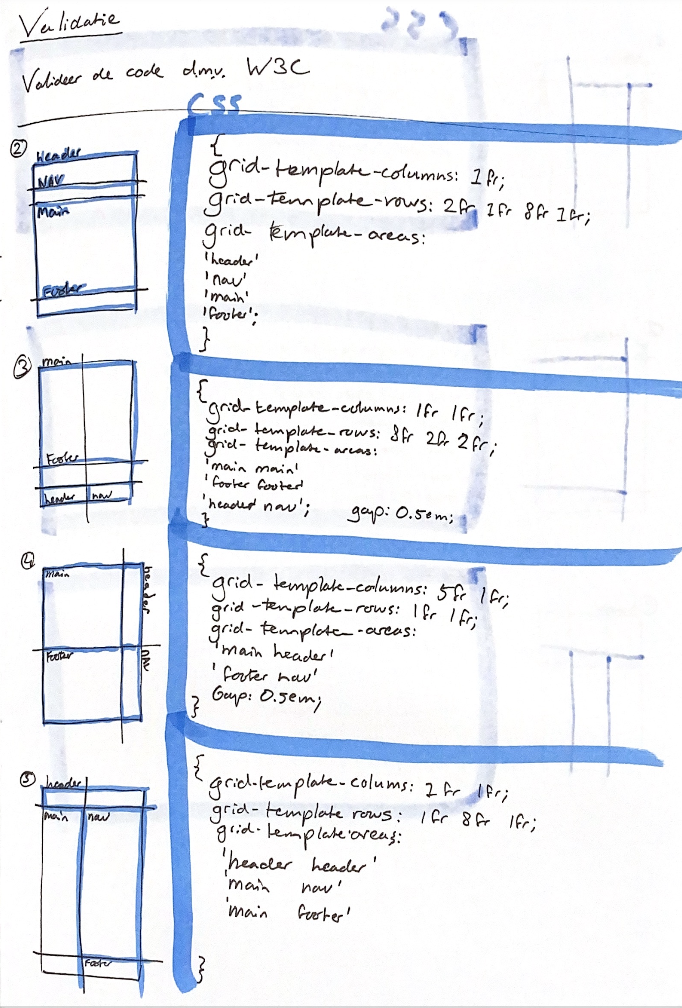 Validatie
Valideer de code d.m.v. W3C
CSS
②
Header
NAV
Main
Footer
{
grid-template-columns: 1fr;
grid-template-rows: 2fr 1fr 8fr 1fr;
grid-template-areas:
'header'
'nav'
'main'
'footer';
}
③
main
Footer
header nav
{
grid-template-columns: 1fr 1fr;
grid-template-rows: 8fr 2fr 2fr;
grid-template-areas:
'main main'
'footer footer'
'header nav'; gap: 0.5em;
}
④
main
header
Footer
NAV
{
grid-template-columns: 5fr 1fr;
grid-template-rows: 1fr 1fr;
grid-template-areas:
'main header'
'footer nav'
Gap: 0.5em;
}
⑤
header
main nav
Footer
{
grid-template-colums: 2fr 1fr;
grid-template rows: 1fr 8fr 1fr;
grid-template areas:
'header header'
'main nav'
'main footer'
}